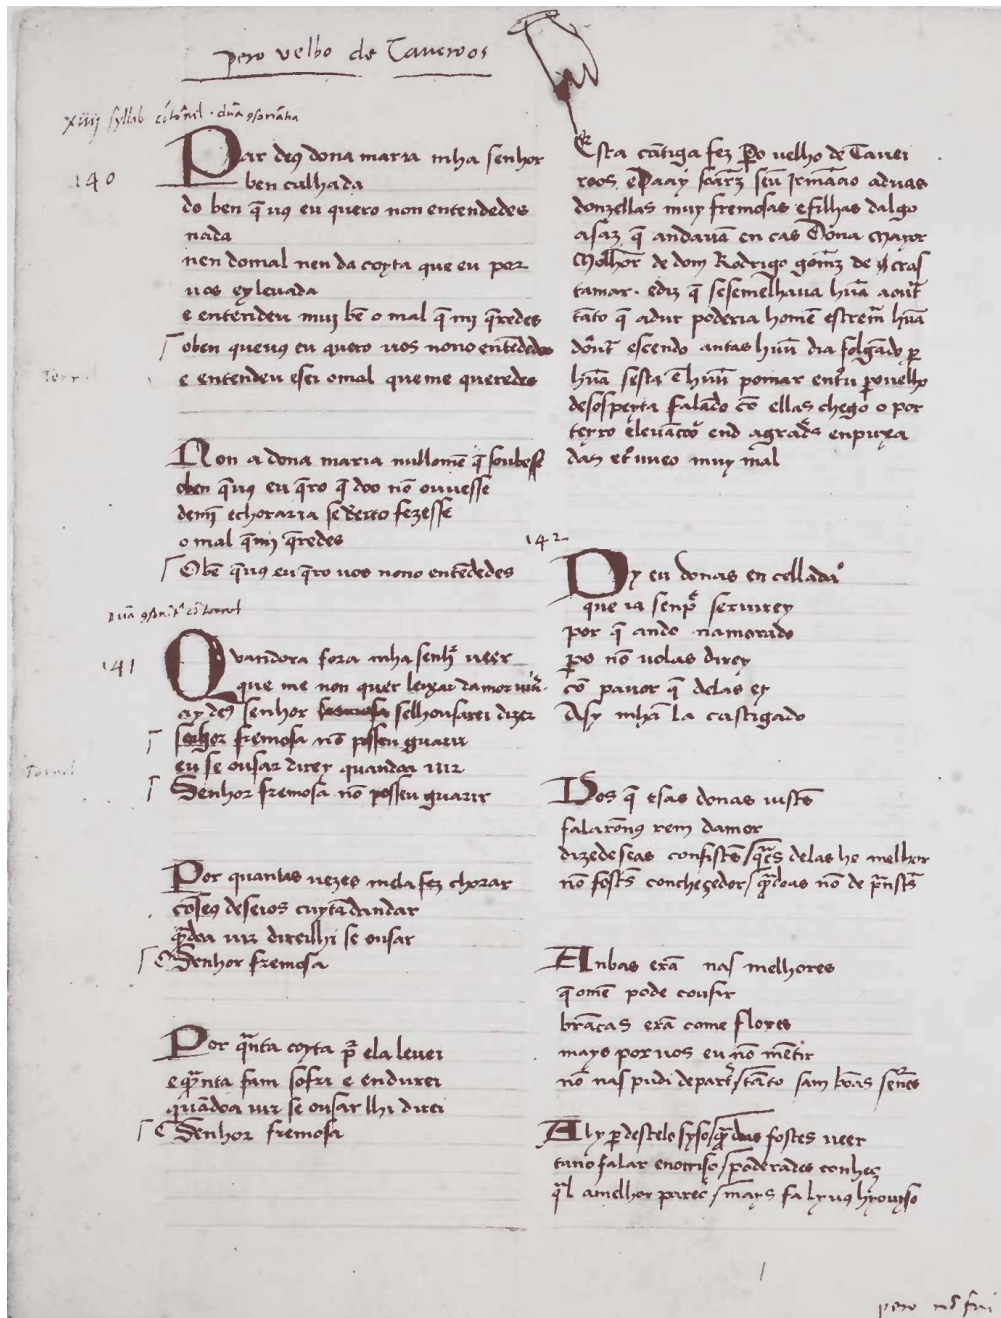 pero velho de Taueroos
xiiij syllab
140
Par deus dona maria mha senhor
ben talhada
do ben q̄ vus eu quero non entendedes
nada
nen do mal nen da coyta que eu por
uos ey leuada
e entendeu mui bē o mal q̄ mi q̄redes
oben queuus eu quero uos nono entēdedes
e entendeu esei omal queme queredes
Non a dona maria nullomē q̄ soubesse
oben q̄uus eu q̄ro q̄ doo nō ouuesse
demi echoraria se dereito fezesse
o mal q̄mi q̄redes
Obē q̄uus eu q̄ro uos nono entēdedes
141
Quandora fora mha senhr̄ ueer
que me non quer leixar damor uiu̾
ay deus senhor selhousarei dizer
senhor fremosa nō posseu guarir
eu se ousar direy quandoa uir
Tornel
Senhor fremosa nō posseu guarir
Por quantas uezes mela fez chorar
cōseus deseios cuytādandar
q̄ndoa uir direilhi se ousar
Senhor fremosa
Por q̄nta coyta pr̄ ela leuei
e q̄nta fam sofri e endurei
quādoa uir se ousar lhi direi
Senhor fremosa
Esta cātiga fez Po uelho de Tauei
roos. ePaay soarz seu Irmāao aduas
donzellas muy fremosas efilhas dalgo
asaz q̄ andauā en cas Dona mayor
Molher de dom Rodrigo gomz de cras
tamar. ediz q̄ sesemelhaua hūa aoutr̄
tāto q̄ adur poderia homē estremr̄ hūa
doutr̄ escendo antas hūu dia folgādo p̱
hūa sesta ē hūu pomar entrou po uelho
desospeyta falādo cō ellas chego o por
teyro eleuātou end agrades enpuxa
das
142
Dy eu donas en cellado
que ia senpr̄ seruirey
por q̄ ando namorado
po nō uolas direy
cō pauor q̄ delas ey
Asy mhā la castigado
Uos q̄ esas donas uistes
falarōuus rem damor
dizedeseas confistes / q̄es delas he melhor
nō fostes conheçedor / q̄ndoas nō departistes
Anbas erā nas melhores
q̄ omē pode cousir
brācas erā come flores
mays por uos eu nō mētir
nō nas pudi departir / tāto sam bōas señes
Aly p̱destelo syso / q̄ndas fostes ueer
falar enoriso / poderades conheç
q̄l amelhor parec̄ / mays
pero nō fui